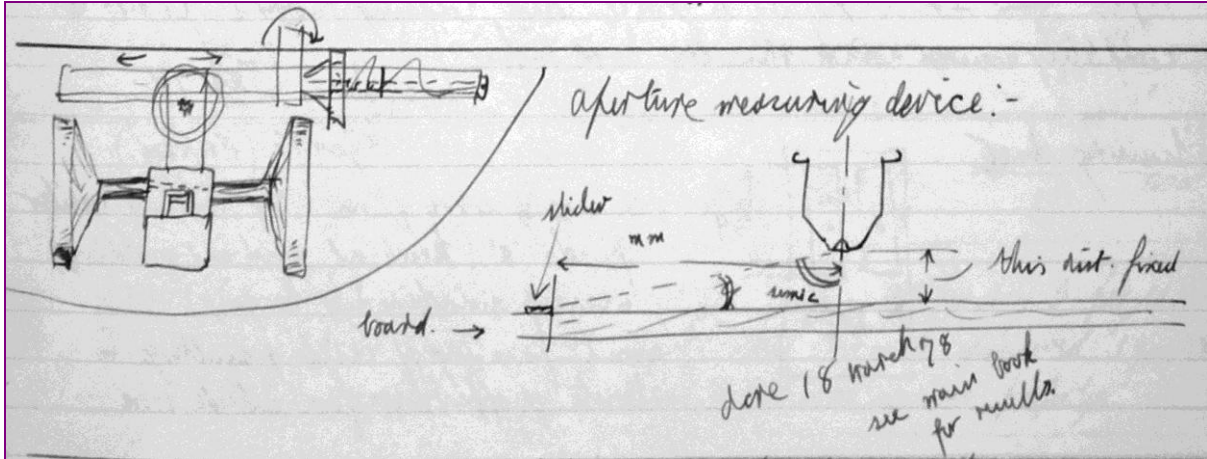 aperture measuring device:-
slider
mm
this dist. fixed
board. →
done 18 March 78
see main book
for results.